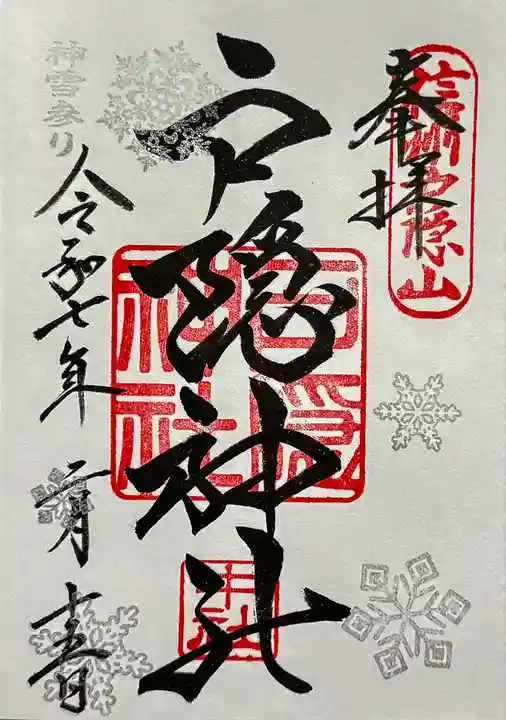 奉拝
信州戸隠山
戸隠神社
戸隠神社
中社
神雪参り
令和七年 二月